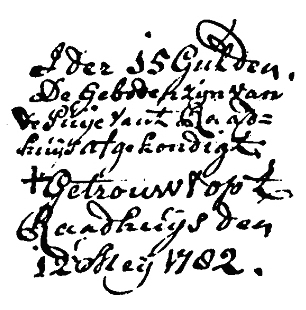 Ider 15 Gulden.
De Geboden zyn van
de Puije vant Raad=
huijs afgekondigt
†Getrouwt opt
Raadhuijs den
12 Meij 1782.